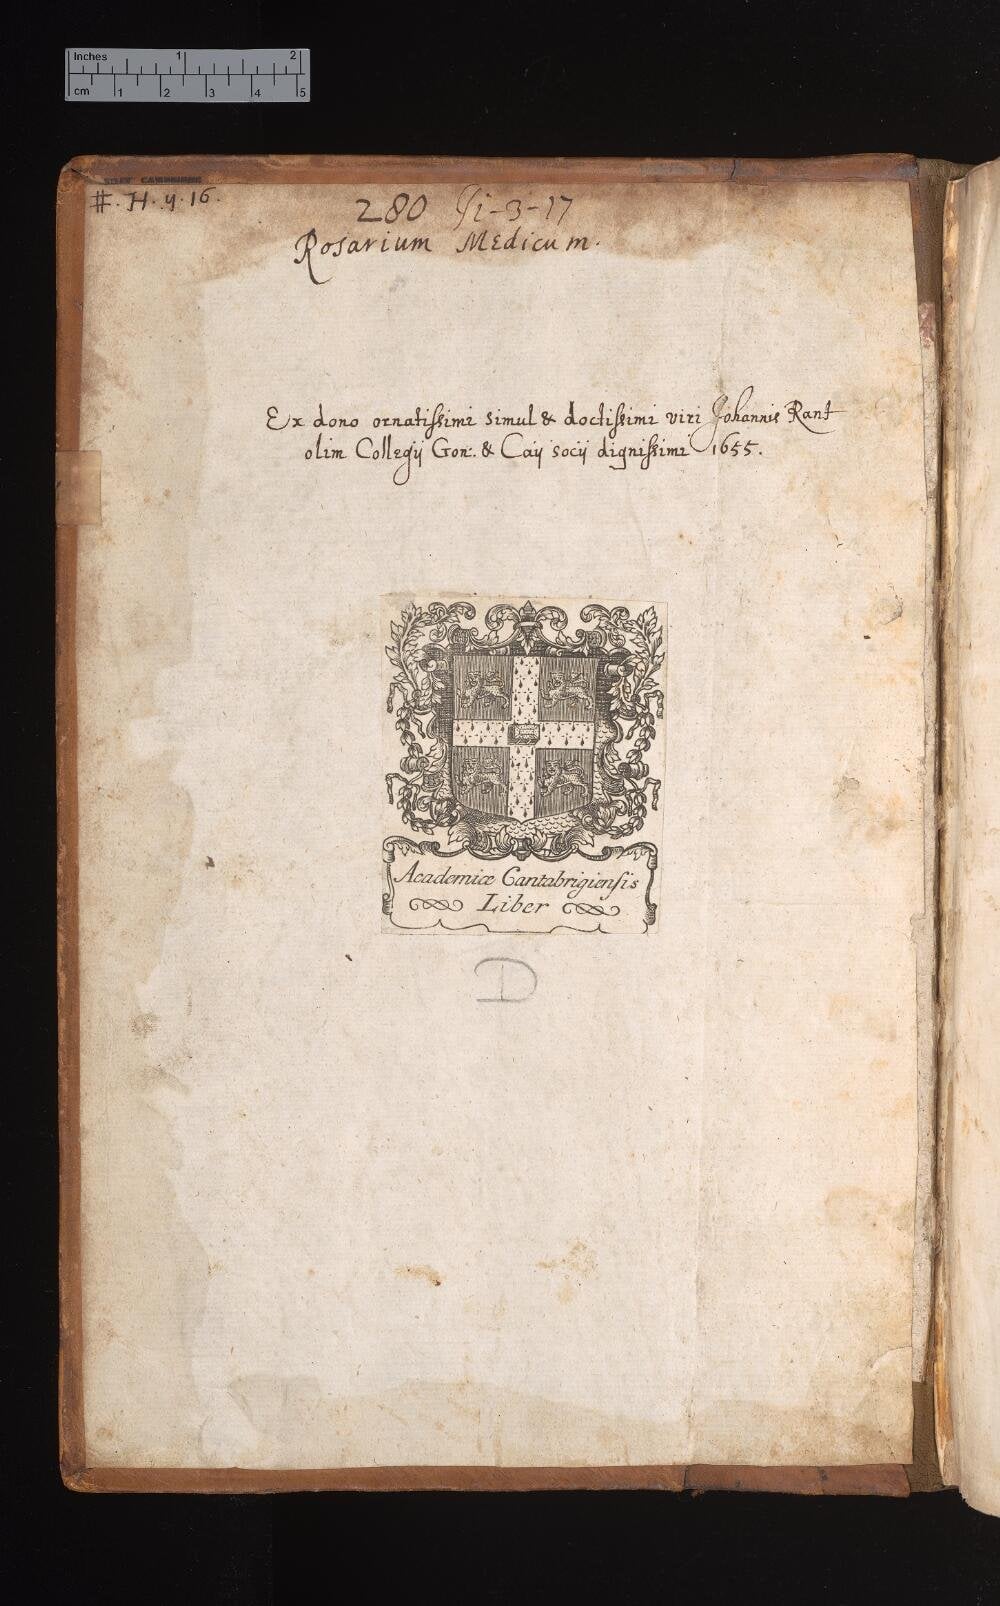 Inches 1 2
cm 1 2 3 4 5
#. H. y. 16.
280 Ii-3-17
Rosarium Medicum.
Ex dono ornatiſsimi simul & doctiſsimi viri Johannis Rant
olim Collegij Gon: & Caij socij digniſsimi 1655.
Academiæ Cantabrigienſis
Liber
D